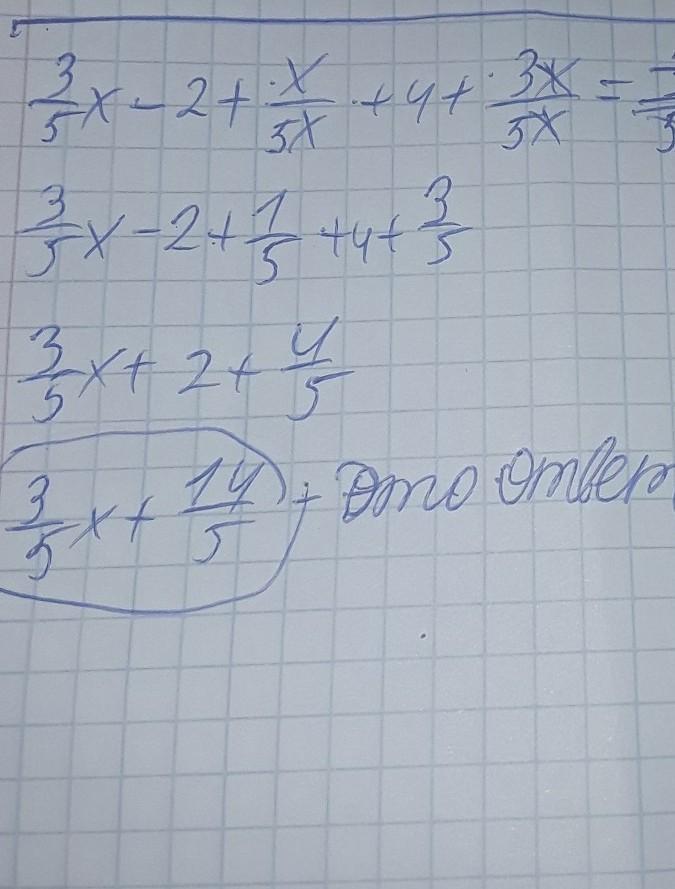 3/5 x - 2 + x/5x + 4 + 3x/5x =
3/5 x - 2 + 1/5 + 4 + 3/5
3/5 x + 2 + 4/5
3/5 x + 14/5 + Это ответ